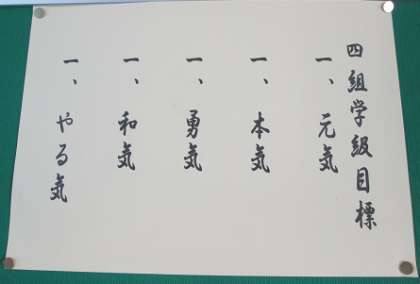 四組学級目標
一、元気
一、本気
一、勇気
一、和気
一、やる気